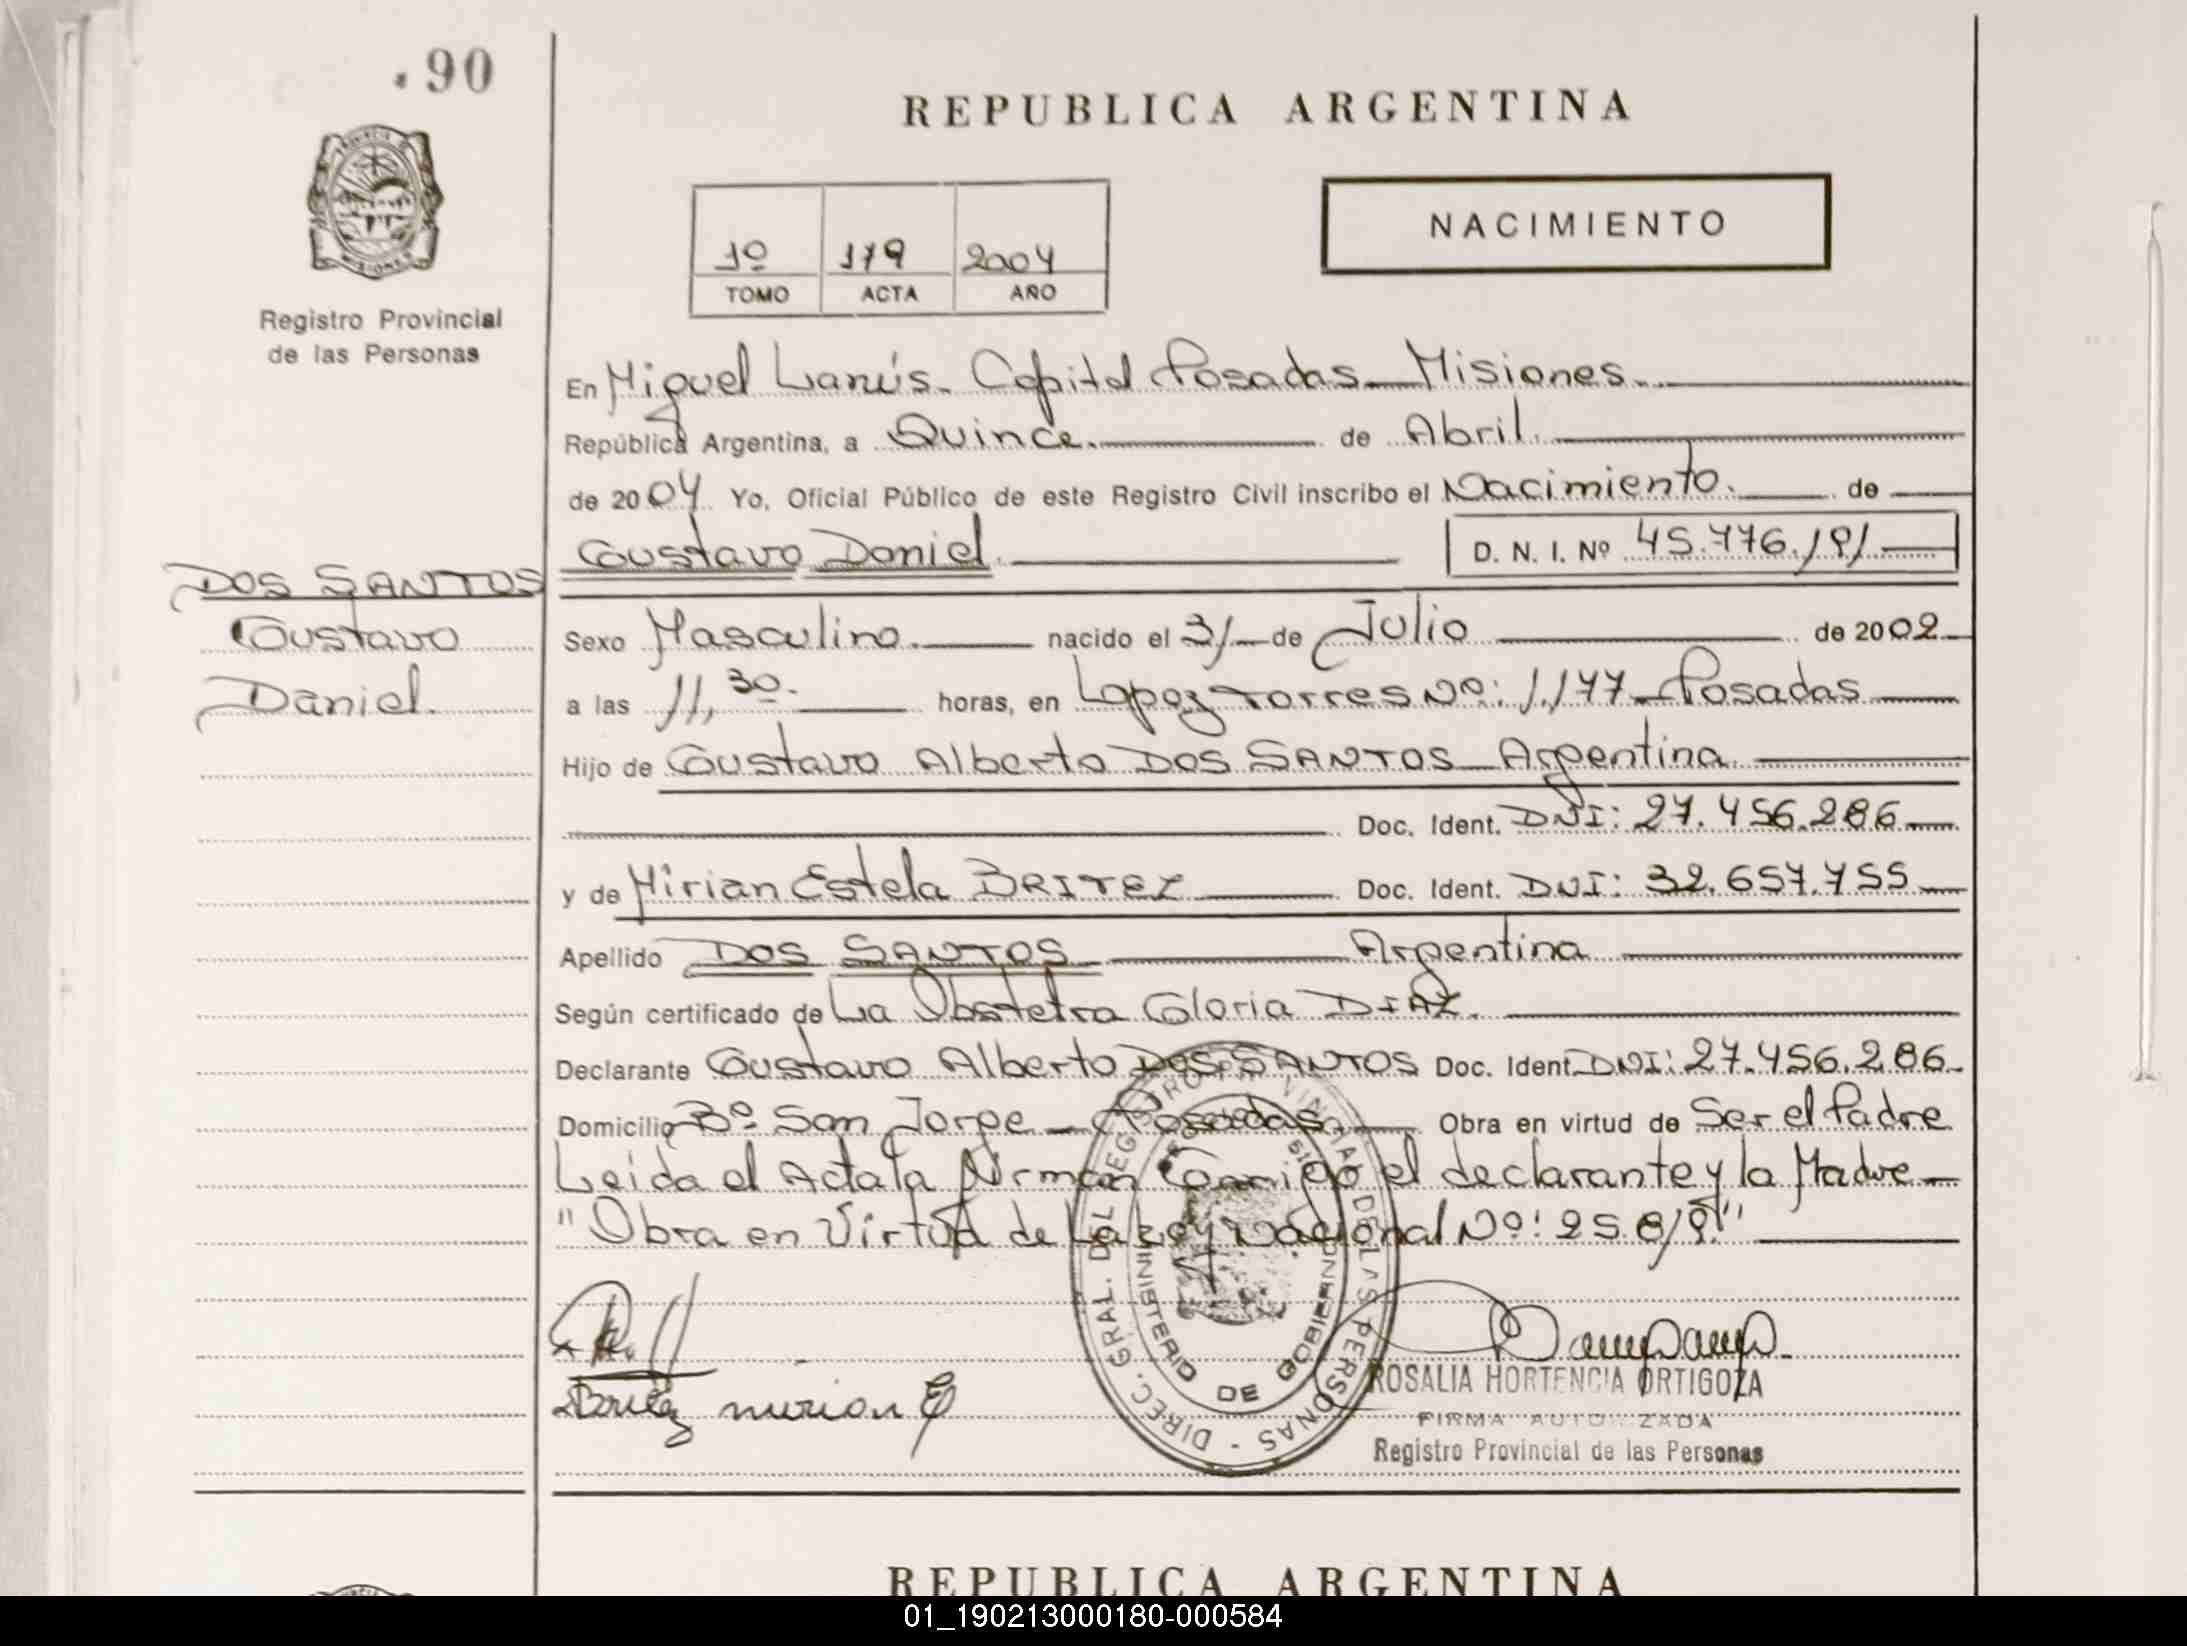 90
REPUBLICA ARGENTINA
NACIMIENTO
1º 179 2004
TOMO ACTA AÑO
Registro Provincial
de las Personas
En Miguel Lanús. Capital Posadas Misiones.
República Argentina, a Quince. de Abril.
de 2004 Yo, Oficial Público de este Registro Civil inscribo el Nacimiento. de
Gustavo Daniel. D. N. I. Nº 45.776.191
DOS SANTOS
Gustavo
Daniel.
Sexo Masculino. nacido el 31 de Julio de 2002
a las 11,30. horas, en Lopez Torres Nº: 1.177 Posadas
Hijo de Gustavo Alberto DOS SANTOS Argentina
Doc. Ident. DNI: 27.456.286
y de Mirian Estela BRITEZ Doc. Ident. DNI: 32.657.755
Apellido DOS SANTOS Argentina
Según certificado de La Obstetra Gloria DIAZ.
Declarante Gustavo Alberto DOS SANTOS Doc. Ident. DNI: 27.456.286
Domicilio Bº San Jorge Posadas. Obra en virtud de Ser el Padre
Leida el Acta la Firman Conmigo el declarante y la Madre
"Obra en Virtud de La Ley Nacional Nº: 25.819."
DIREC. GRAL. DEL REGISTRO PROVINCIAL DE LAS PERSONAS
MINISTERIO DE GOBIERNO
Britez mirian E
ROSALIA HORTENCIA ORTIGOZA
FIRMA AUTORIZADA
Registro Provincial de las Personas
REPUBLICA ARGENTINA
01_190213000180-000584